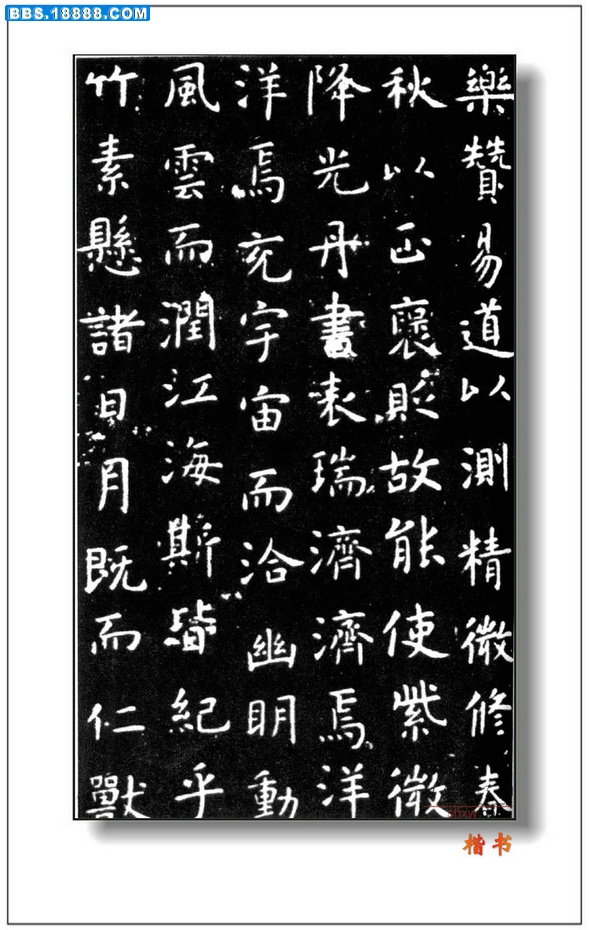 BBS.18888.COM
樂贊易道以測精微修春
秋以正襃貶故能使紫微
降光丹書表瑞濟濟焉洋
洋焉充宇宙而洽幽明動
風雲而潤江海斯皆紀乎
竹素懸諸日月既而仁獸
楷书